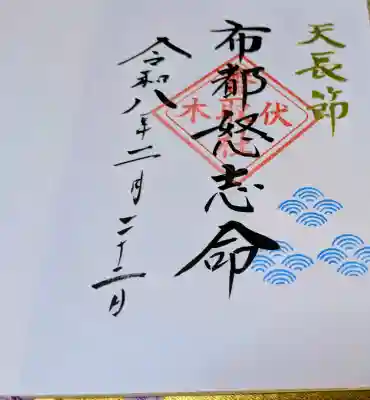 天長節
布都怒志命
伏
木
社
令和八年二月二十二日